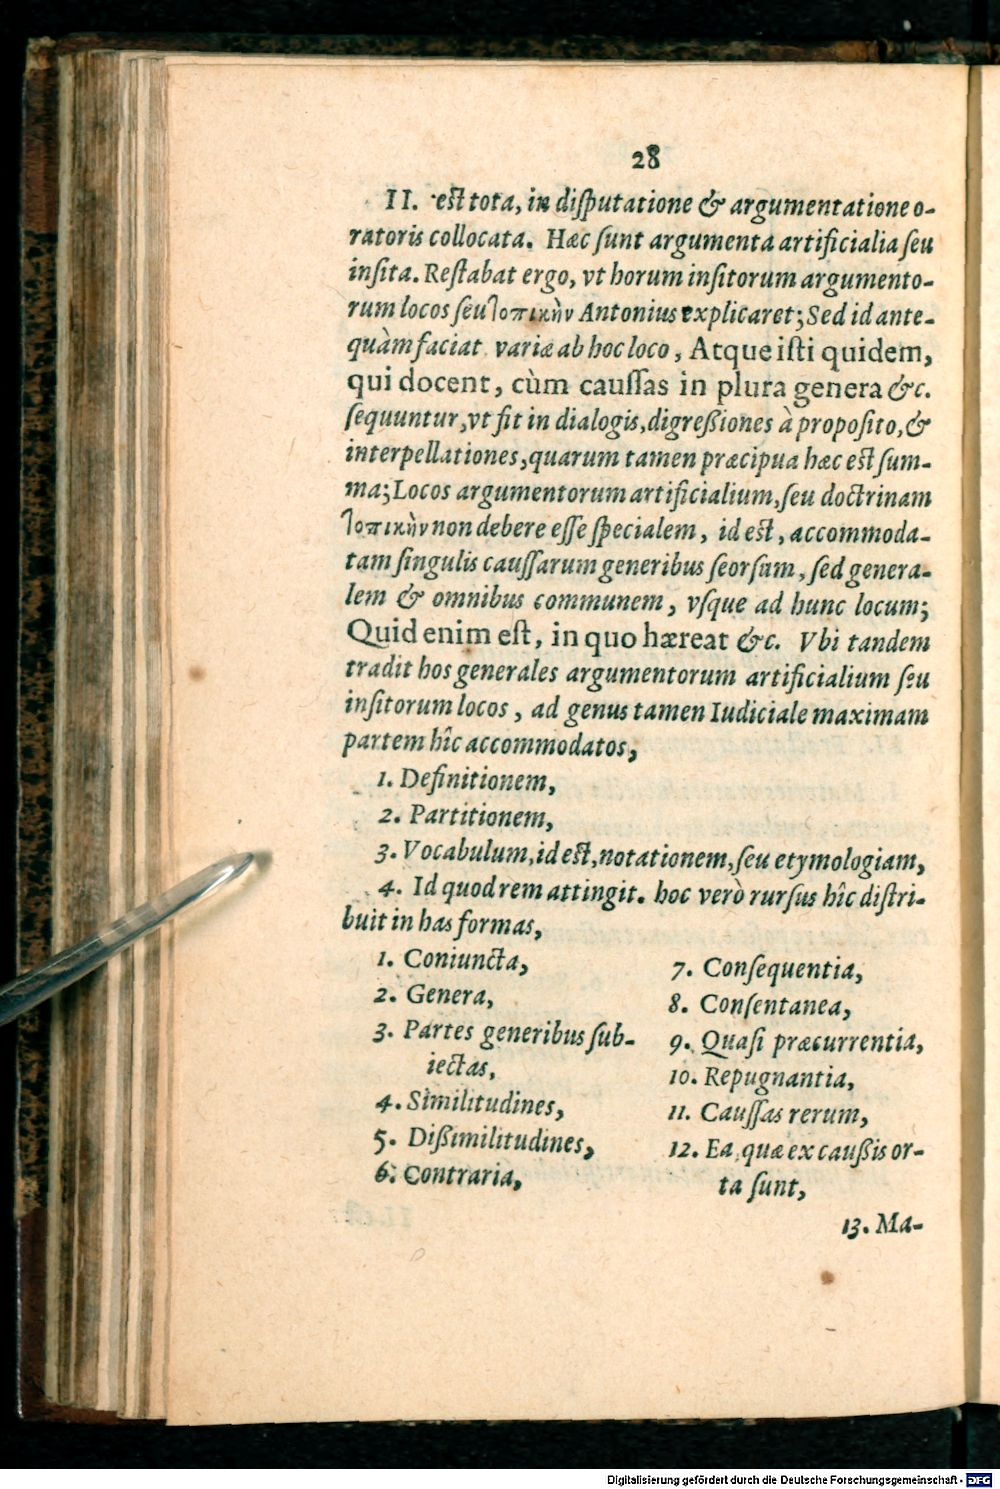 28
II. est tota, in disputatione & argumentatione o-
ratoris collocata. Hæc sunt argumenta artificialia seu
insita. Restabat ergo, vt horum insitorum argumento-
rum locos seu τοπικὴν Antonius explicaret; Sed id ante-
quàm faciat variæ ab hoc loco, Atque isti quidem,
qui docent, cùm caussas in plura genera &c.
sequuntur, vt fit in dialogis, digreßiones à proposito, &
interpellationes, quarum tamen præcipua hæc est sum-
ma; Locos argumentorum artificialium, seu doctrinam
τοπικὴν non debere esse specialem, id est, accommoda-
tam singulis caussarum generibus seorsum, sed genera-
lem & omnibus communem, vsque ad hunc locum;
Quid enim est, in quo hæreat &c. Vbi tandem
tradit hos generales argumentorum artificialium seu
insitorum locos, ad genus tamen Iudiciale maximam
partem hîc accommodatos,
1. Definitionem,
2. Partitionem,
3. Vocabulum, id est, notationem, seu etymologiam,
4. Id quod rem attingit. hoc verò rursus hîc distri-
buit in has formas,
1. Coniuncta,
2. Genera,
3. Partes generibus sub-
iectas,
4. Similitudines,
5. Dißimilitudines,
6. Contraria,
7. Consequentia,
8. Consentanea,
9. Quasi præcurrentia,
10. Repugnantia,
11. Caussas rerum,
12. Ea quæ ex caußis or-
ta sunt,
13. Ma-
Digitalisierung gefördert durch die Deutsche Forschungsgemeinschaft - DFG